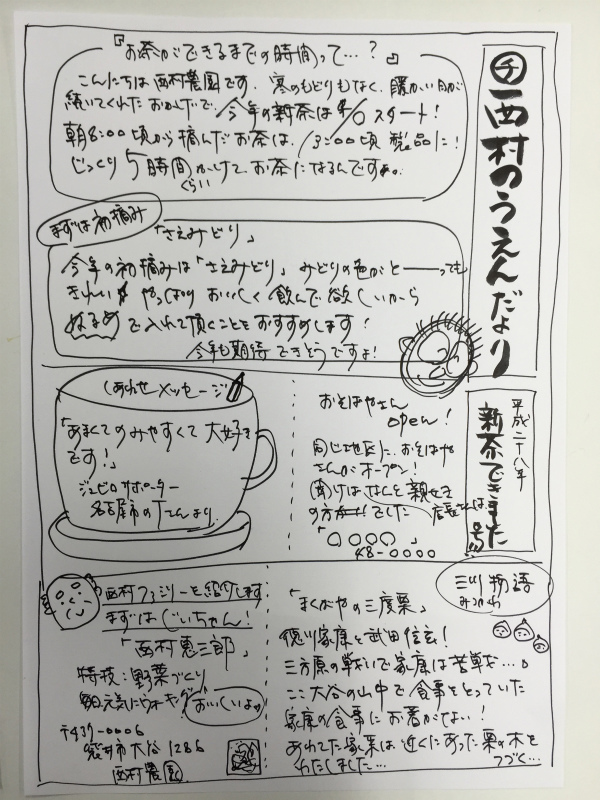 チ西村のうえんだより
『お茶ができるまでの時間って…？』
こんにちは西村農園です。寒のもどりもなく、暖かい日が
続いてくれたおかげで、今年の新茶は4/10スタート！
朝8:00頃から摘んだお茶は、13:00頃製品に！
じっくり5時間くらいかけてお茶になるんですよ。
まずは初摘み
「さえみどり」
今年の初摘みは「さえみどり」みどりの色がと――っても
きれい やっぱりおいしく飲んで欲しいから
ぬるめで入れて頂くことをおすすめします！
今年も期待できそうですよ！
平成二十八年
新茶できました号!!
しあわせメッセージ
「あまくてのみやすくて大好き
です！」
ジュビロサポーター
名古屋市のTさんより
おそばやさん
open！
同じ地区に、おそばや
さんがオープン！
店長さんは、
の方でした
「○○○○」
48-0000
西村ファミリーを紹介します
まずはじいちゃん！
「西村恵三郎」
特技：野菜づくり
朝元気にウォーキング
おいしいよッ
〒437-0006
袋井市大谷1286
西村農園
三川物語
みつかわ
「まくがやの三度栗」
徳川家康と武田信玄！
三方原の戦いで家康は苦戦…。
ここ大谷の山中で食事をとっていた
家康の食事にお箸がない！
あわてた家来は近くにあった栗の木を
わたしました…
つづく…